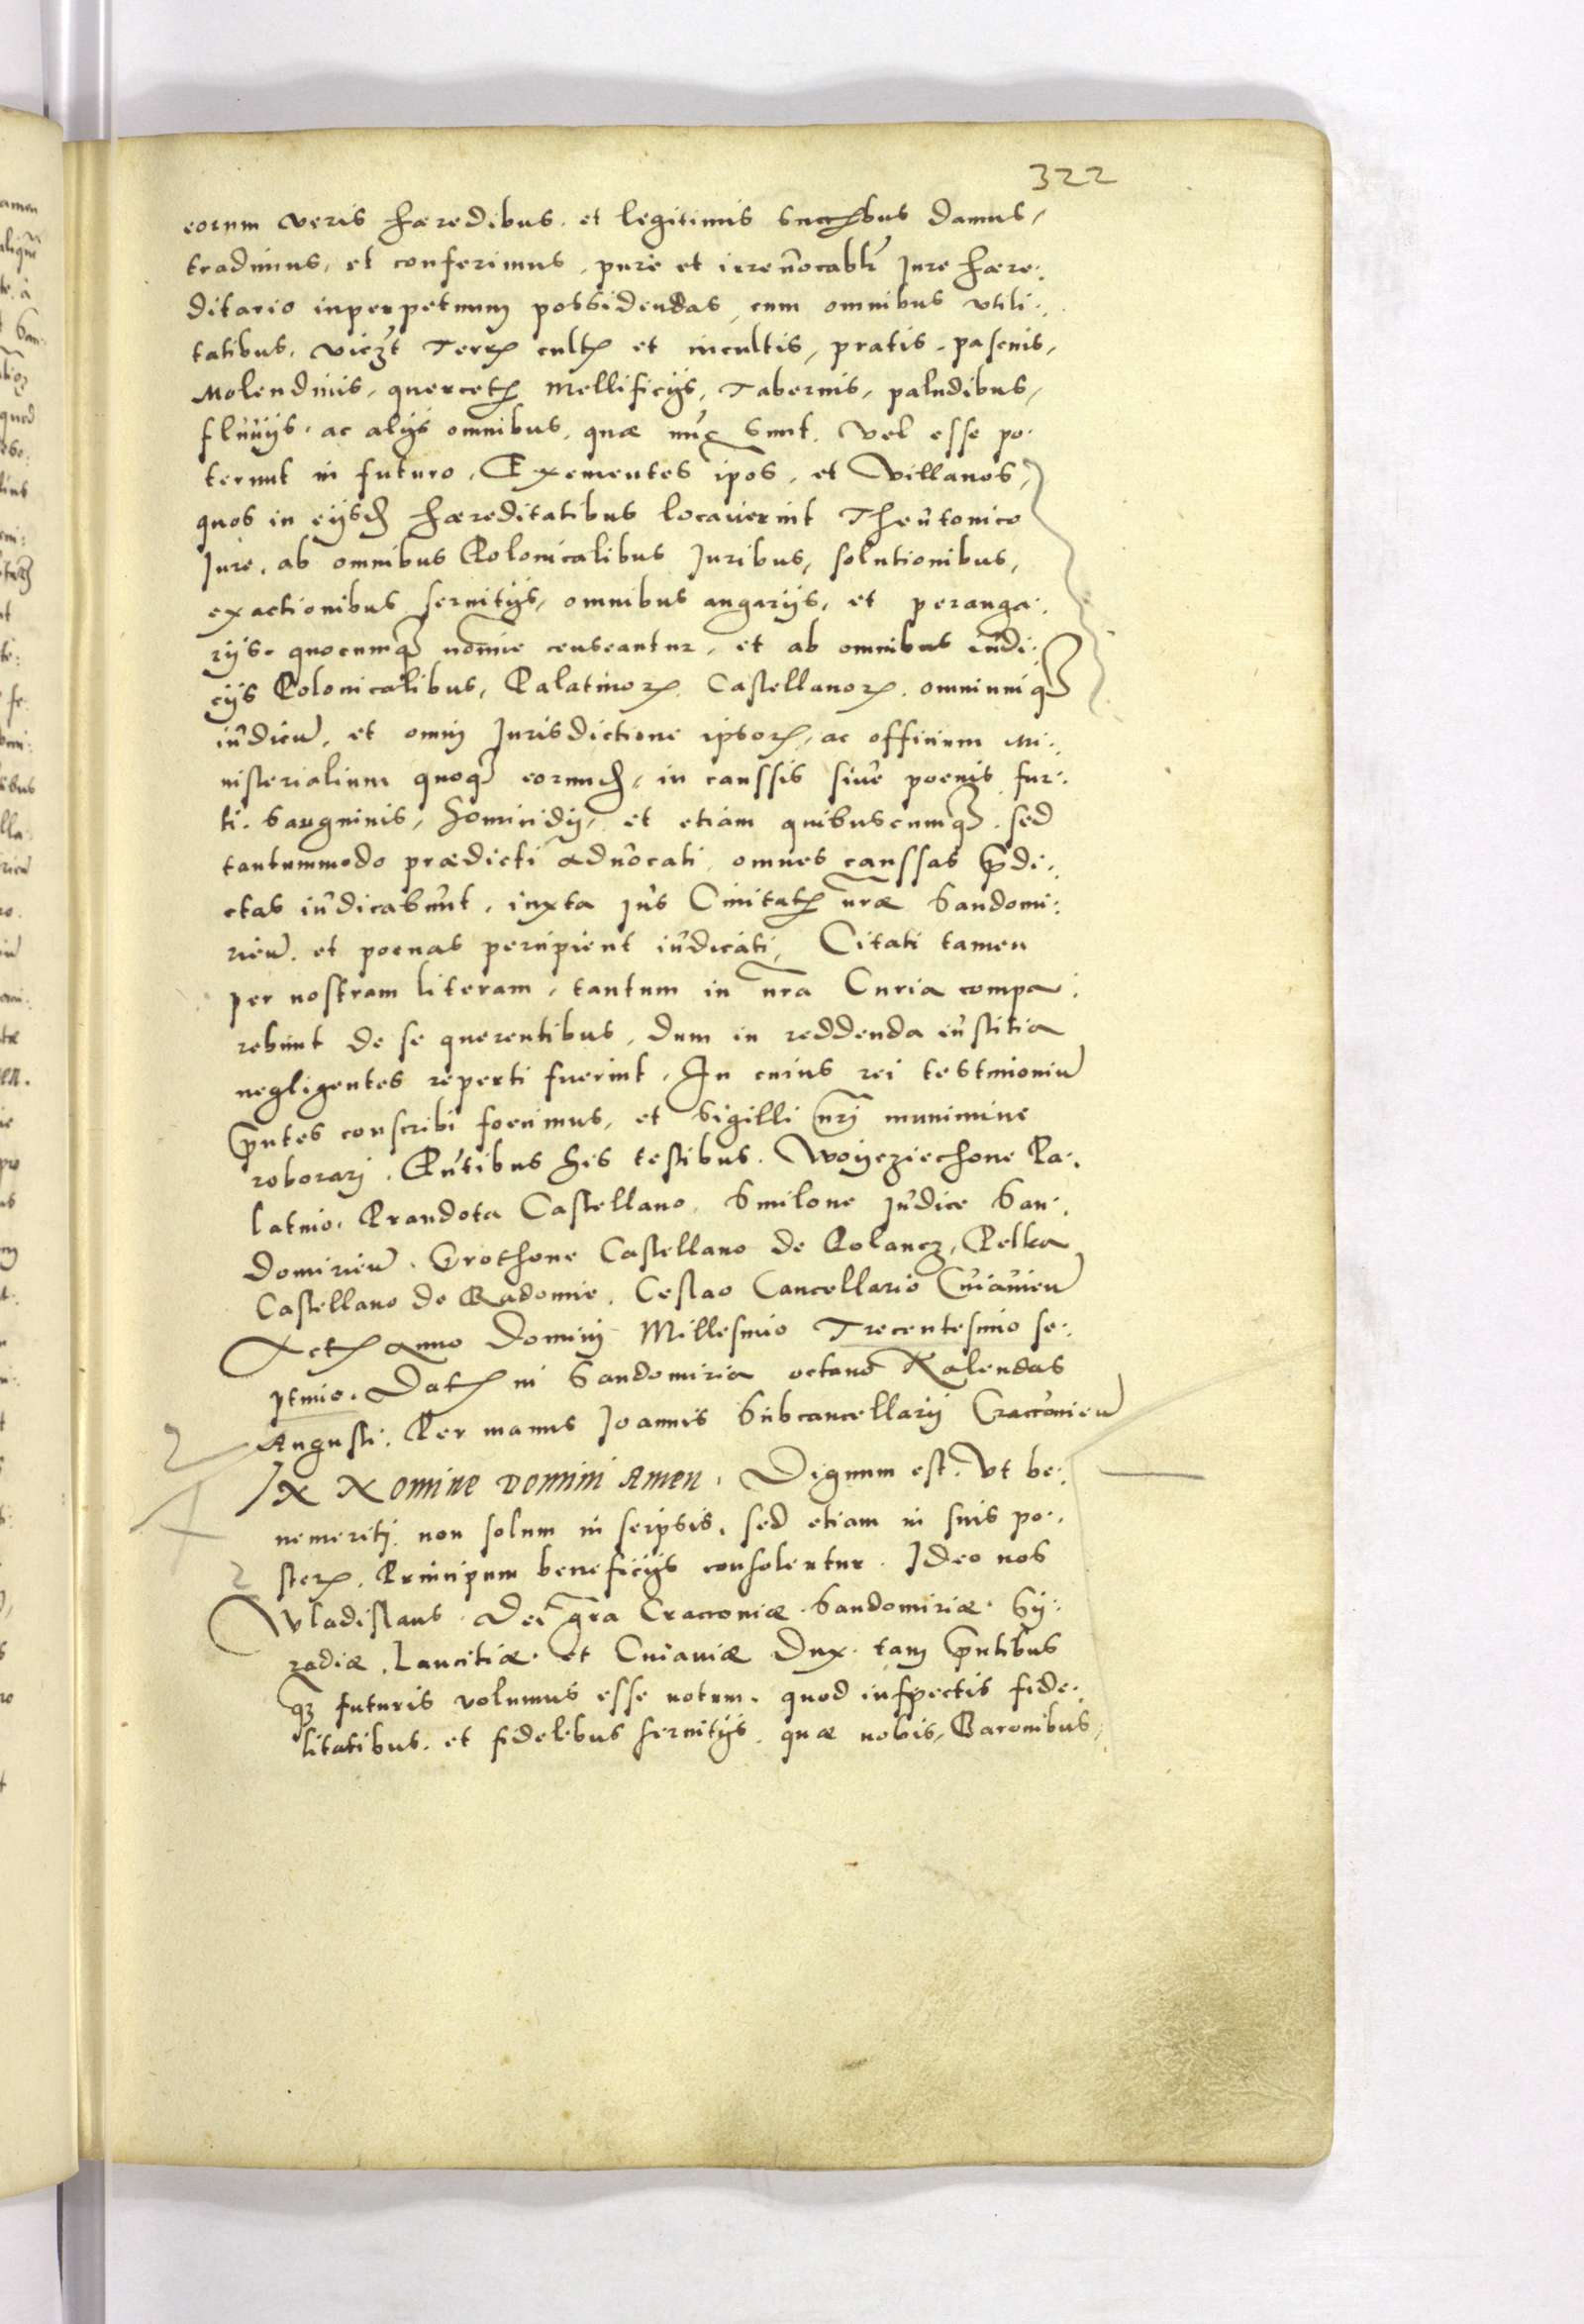 322
eorum veris hæredibus. et legitimis succ̃bus damus,
tradimus, et conferimus, pure et irreuocabłr Jure hære:
ditario inperpetuum possidendas, cum omnibus vtili:
tatibus, vicz̃t Terrꝭ cultꝭ et incultis, pratis, pascuis,
Molendinis, quercetꝭ Mellificijs, Tabernis, paludibus,
fluuijs, ac alijs omnibus, quæ nũc sunt, vel esse po:
terunt in futuro, Exementes ip̃os, et Villanos,
quos in eijsđ hæreditatibus locauerint Theutonico
Jure, ab omnibus Polonicalibus Juribus, solutionibus,
exactionibus seruitijs, omnibus angarijs, et peranga:
rijs. quocumqꝫ nomine censeantur, et ab omnibus iudi:
cijs Polonicalibus, Palatinorꝭ Castellanorꝭ. omniumqꝫ
iudicũ, et omnj Jurisdictione ipsorꝭ, ac officium Mi:
nisterialium quoqꝫ eorumđ, in caussis siue poenis fur:
ti. sanguinis, homicidij, et etiam quibuscumqꝫ. sed
tantummodo prædicti aduocati omnes caussas p̃di:
ctas iudicabunt, iuxta jus Ciuitatꝭ nr̃æ Sandomi:
rieñ. et poenas percipient iudicati, Citati tamen
per nostram literam, tantum in nr̃a Curia compa:
rebunt de se querentibus, dum in reddenda iustitia
negligentes reperti fuerint, In cuius rei testimoniũ
p̃ntes conscribi fecimus, et Sigilli nr̃j munimine
roborarj. Pñtibus his testibus. Woÿcziechone Pa:
latino, Prandota Castellano, Smilone Judice San:
domirieñ. Grothone Castellano de Polancz, Pelka
Castellano de Radomie, Cestao Cancellario Cuiauieñ
Actꝭ Anno Dominj Millesimo Trecentesimo se:
ptimo. Datꝭ in Sandomiria octauo Kalendas
Augusti, Per manus Joannis Subcancellarij Craccouieñ
IN NOMINE DOMINI AMEN. Dignum est, Vt be:
nemeritj non solum in seipsis, sed etiam in suis po:
sterꝭ. Principum beneficijs consolentur. Ideo nos
Vladislaus Dei gr̃a Craccouiæ. Sandomiriæ. Sy:
radiæ, Lancitiæ. et Cuiauiæ Dux. tam p̃ntibus
qꝫ futuris volumus esse notum. quod inspectis fide:
litatibus. et fidelibus seruitijs. quæ nobis, Baronibus,